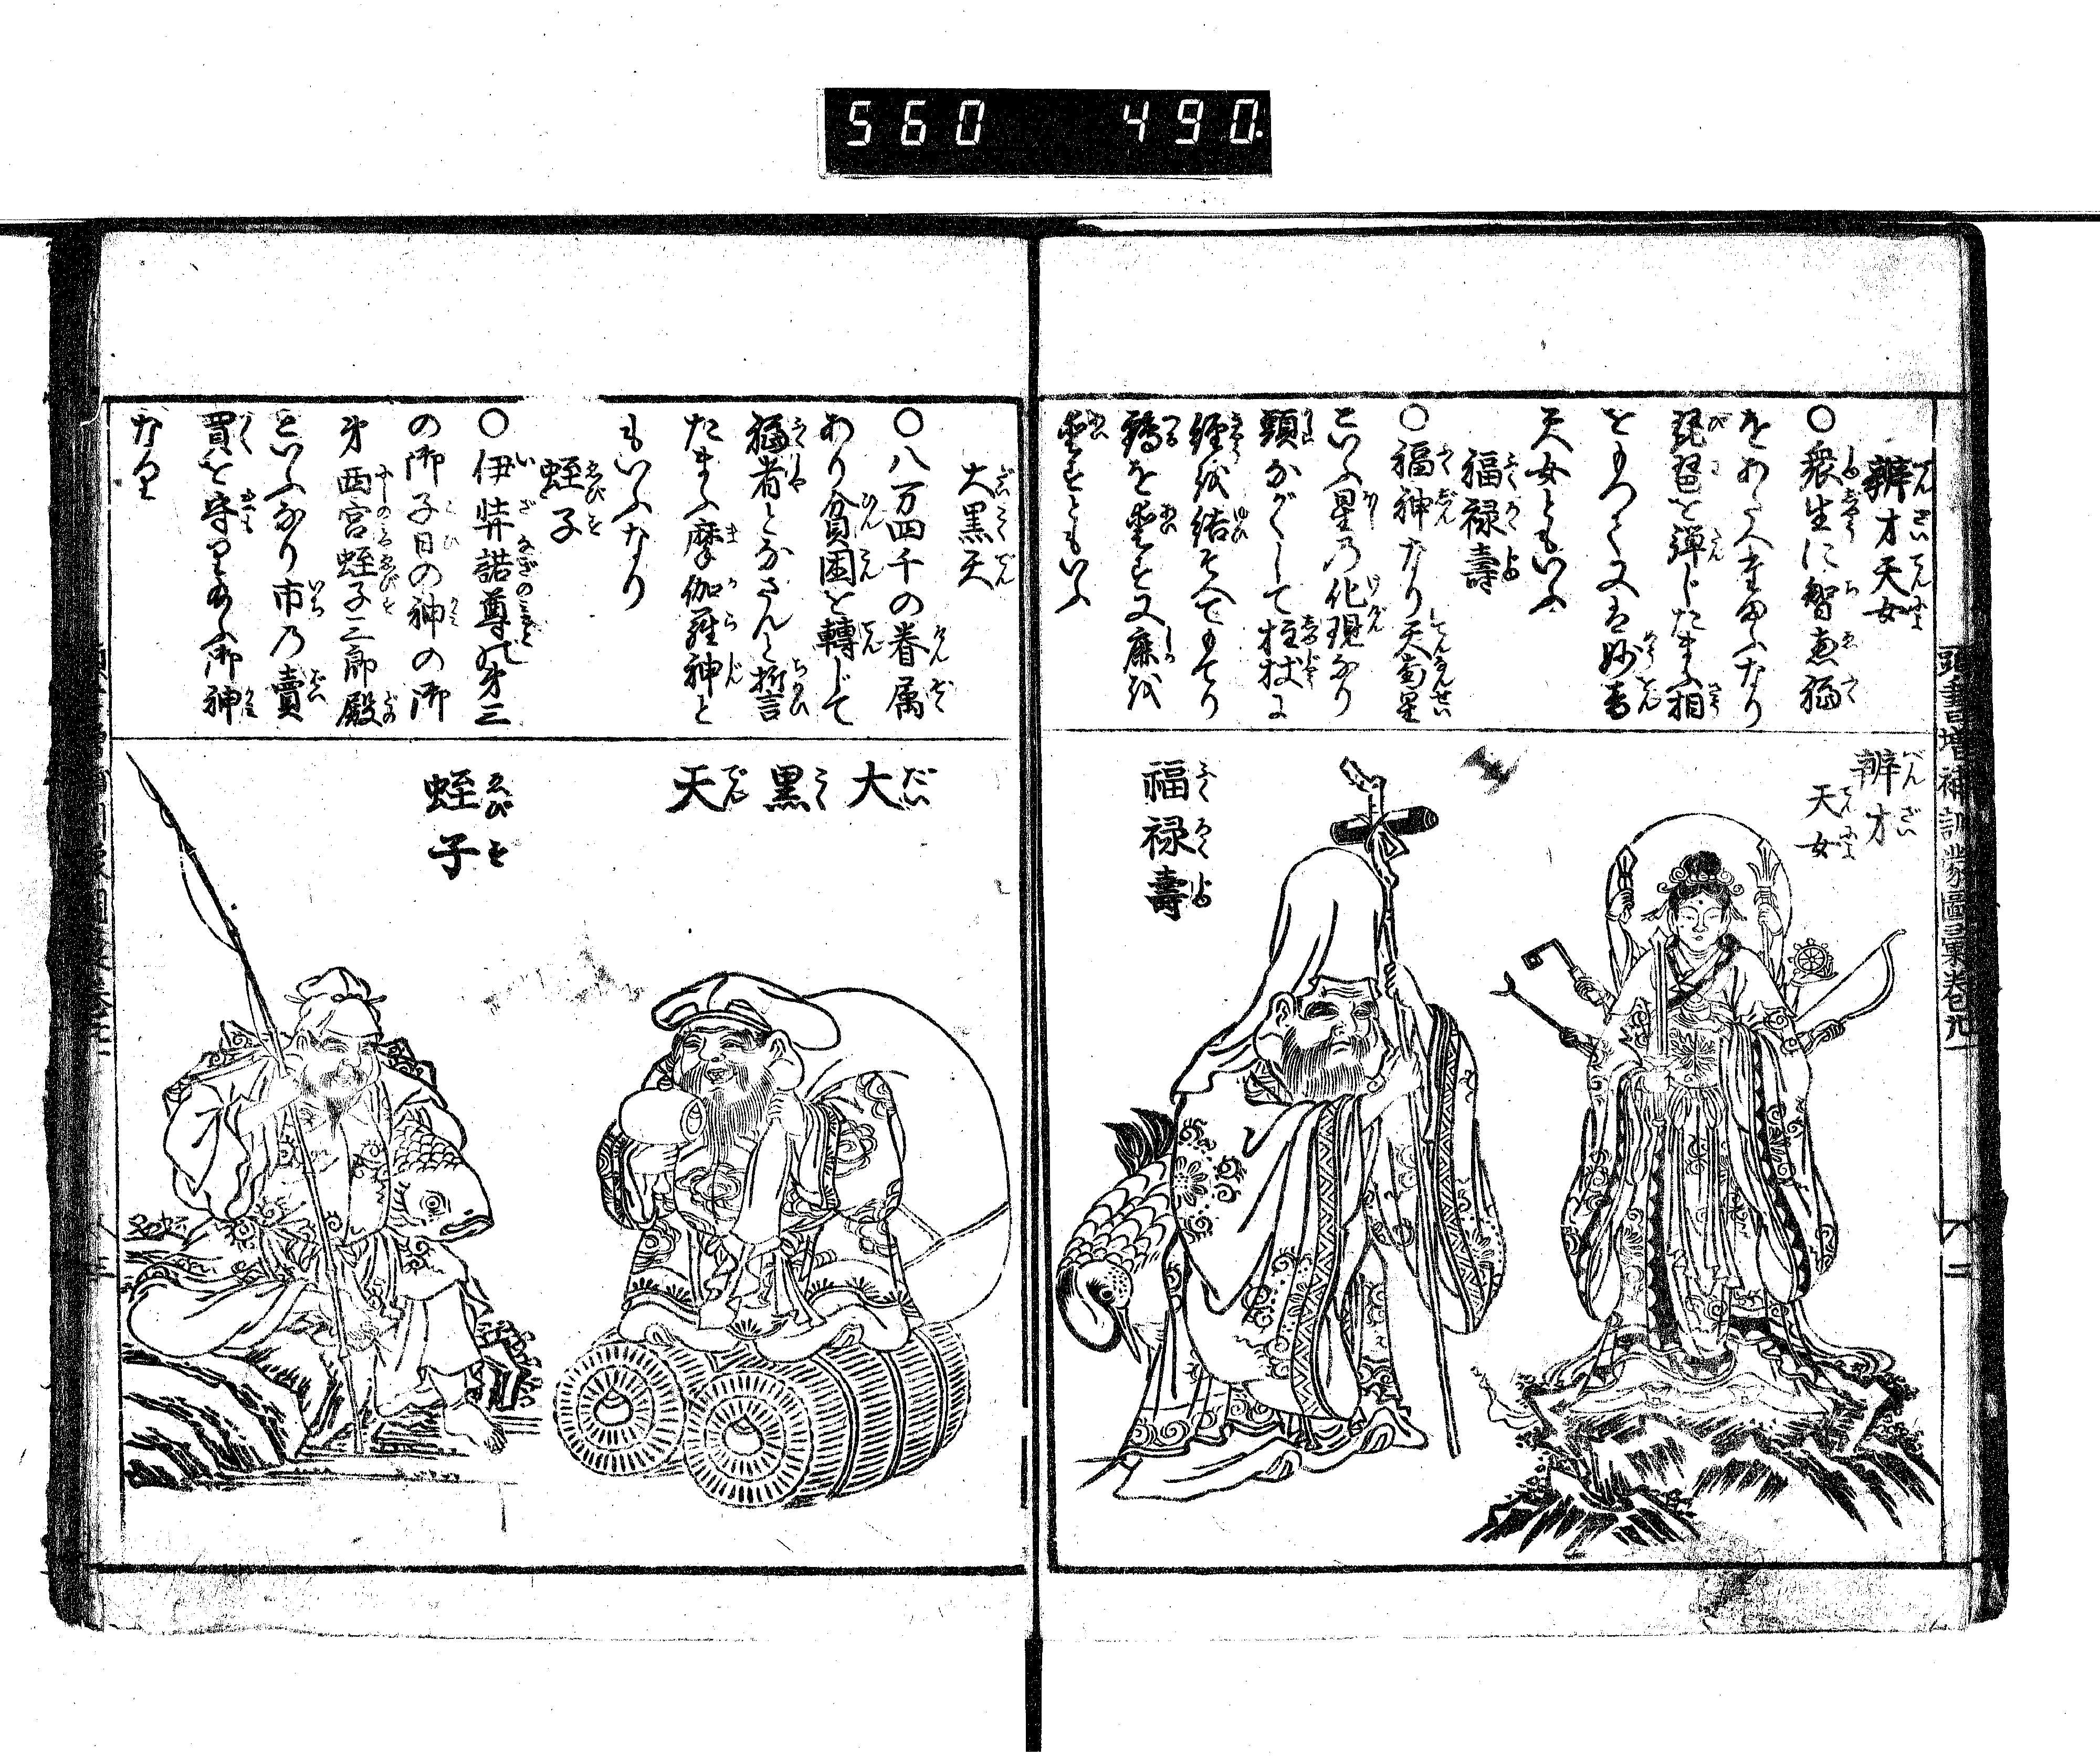 560 490.
頭書増補訓蒙圖彙卷之九
二
辨才天女
○衆生に智恵福
をあたへ玉ふなり
琵琶を弾じたまふ相
をもつて又は妙音
天女ともいふ
福禄壽
○福神なり天南星
といふ星の化現なり
頭ながくして拄杖に
経を結そへてもてり
鶴を愛す又鹿を
愛すともいふ
辨才
天女
福禄壽
大黒天
○八万四千の眷属
あり貧困を轉じて
福者となさんと誓
たまふ摩伽羅神と
もいふなり
蛭子
○伊弉諾尊の第三
の御子日の神の御
弟西宮蛭子三郎殿
といふなり市の賣
買を守り玉ふ御神
なり
大黒天
蛭子